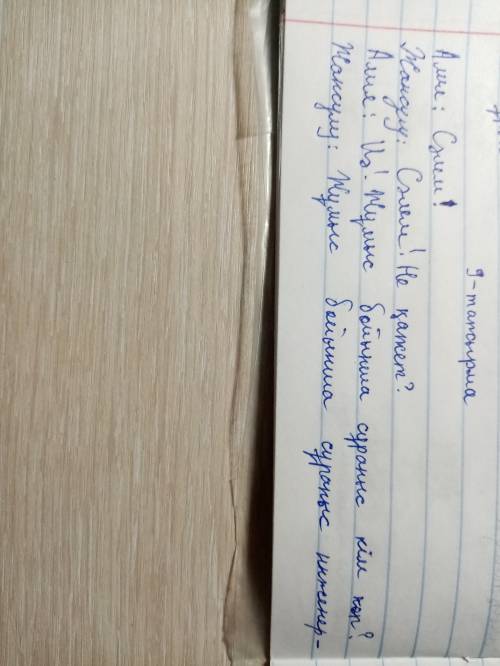 9-тапсырма
Амия: Сәлем!
Жансұлу: Сәлем! Не қажет?
Амия: Иә! Жұмыс бойынша сұраныс кім көп?
Жансұлу: Жұмыс бойынша сұраныс инженер-